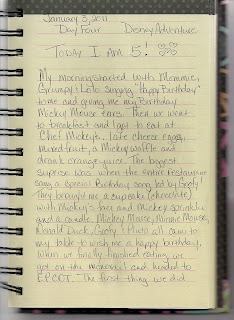 January 3, 2011
Day Four Disney Adventure
Today I Am 5!
My morning started with Mommie,
Grumpy & Lolo singing "Happy Birthday"
to me and giving me my Birthday
Mickey Mouse ears. Then we went
to breakfast and I got to eat at
Chef Mickey's. I ate cheese eggs,
mixed fruit, a Mickey waffle and
drank orange juice. The biggest
suprise was when the entire restaurant
sang a special Birthday song led by Goofy!
They brought me a cupcake (chocolate)
with Mickey's face and Mickey sprinkles
and a candle. Mickey Mouse, Minnie Mouse,
Donald Duck, Goofy & Pluto all came to
my table to wish me a happy birthday.
When we finally finished eating we
got on the monorail and headed to
EPCOT. The first thing we did